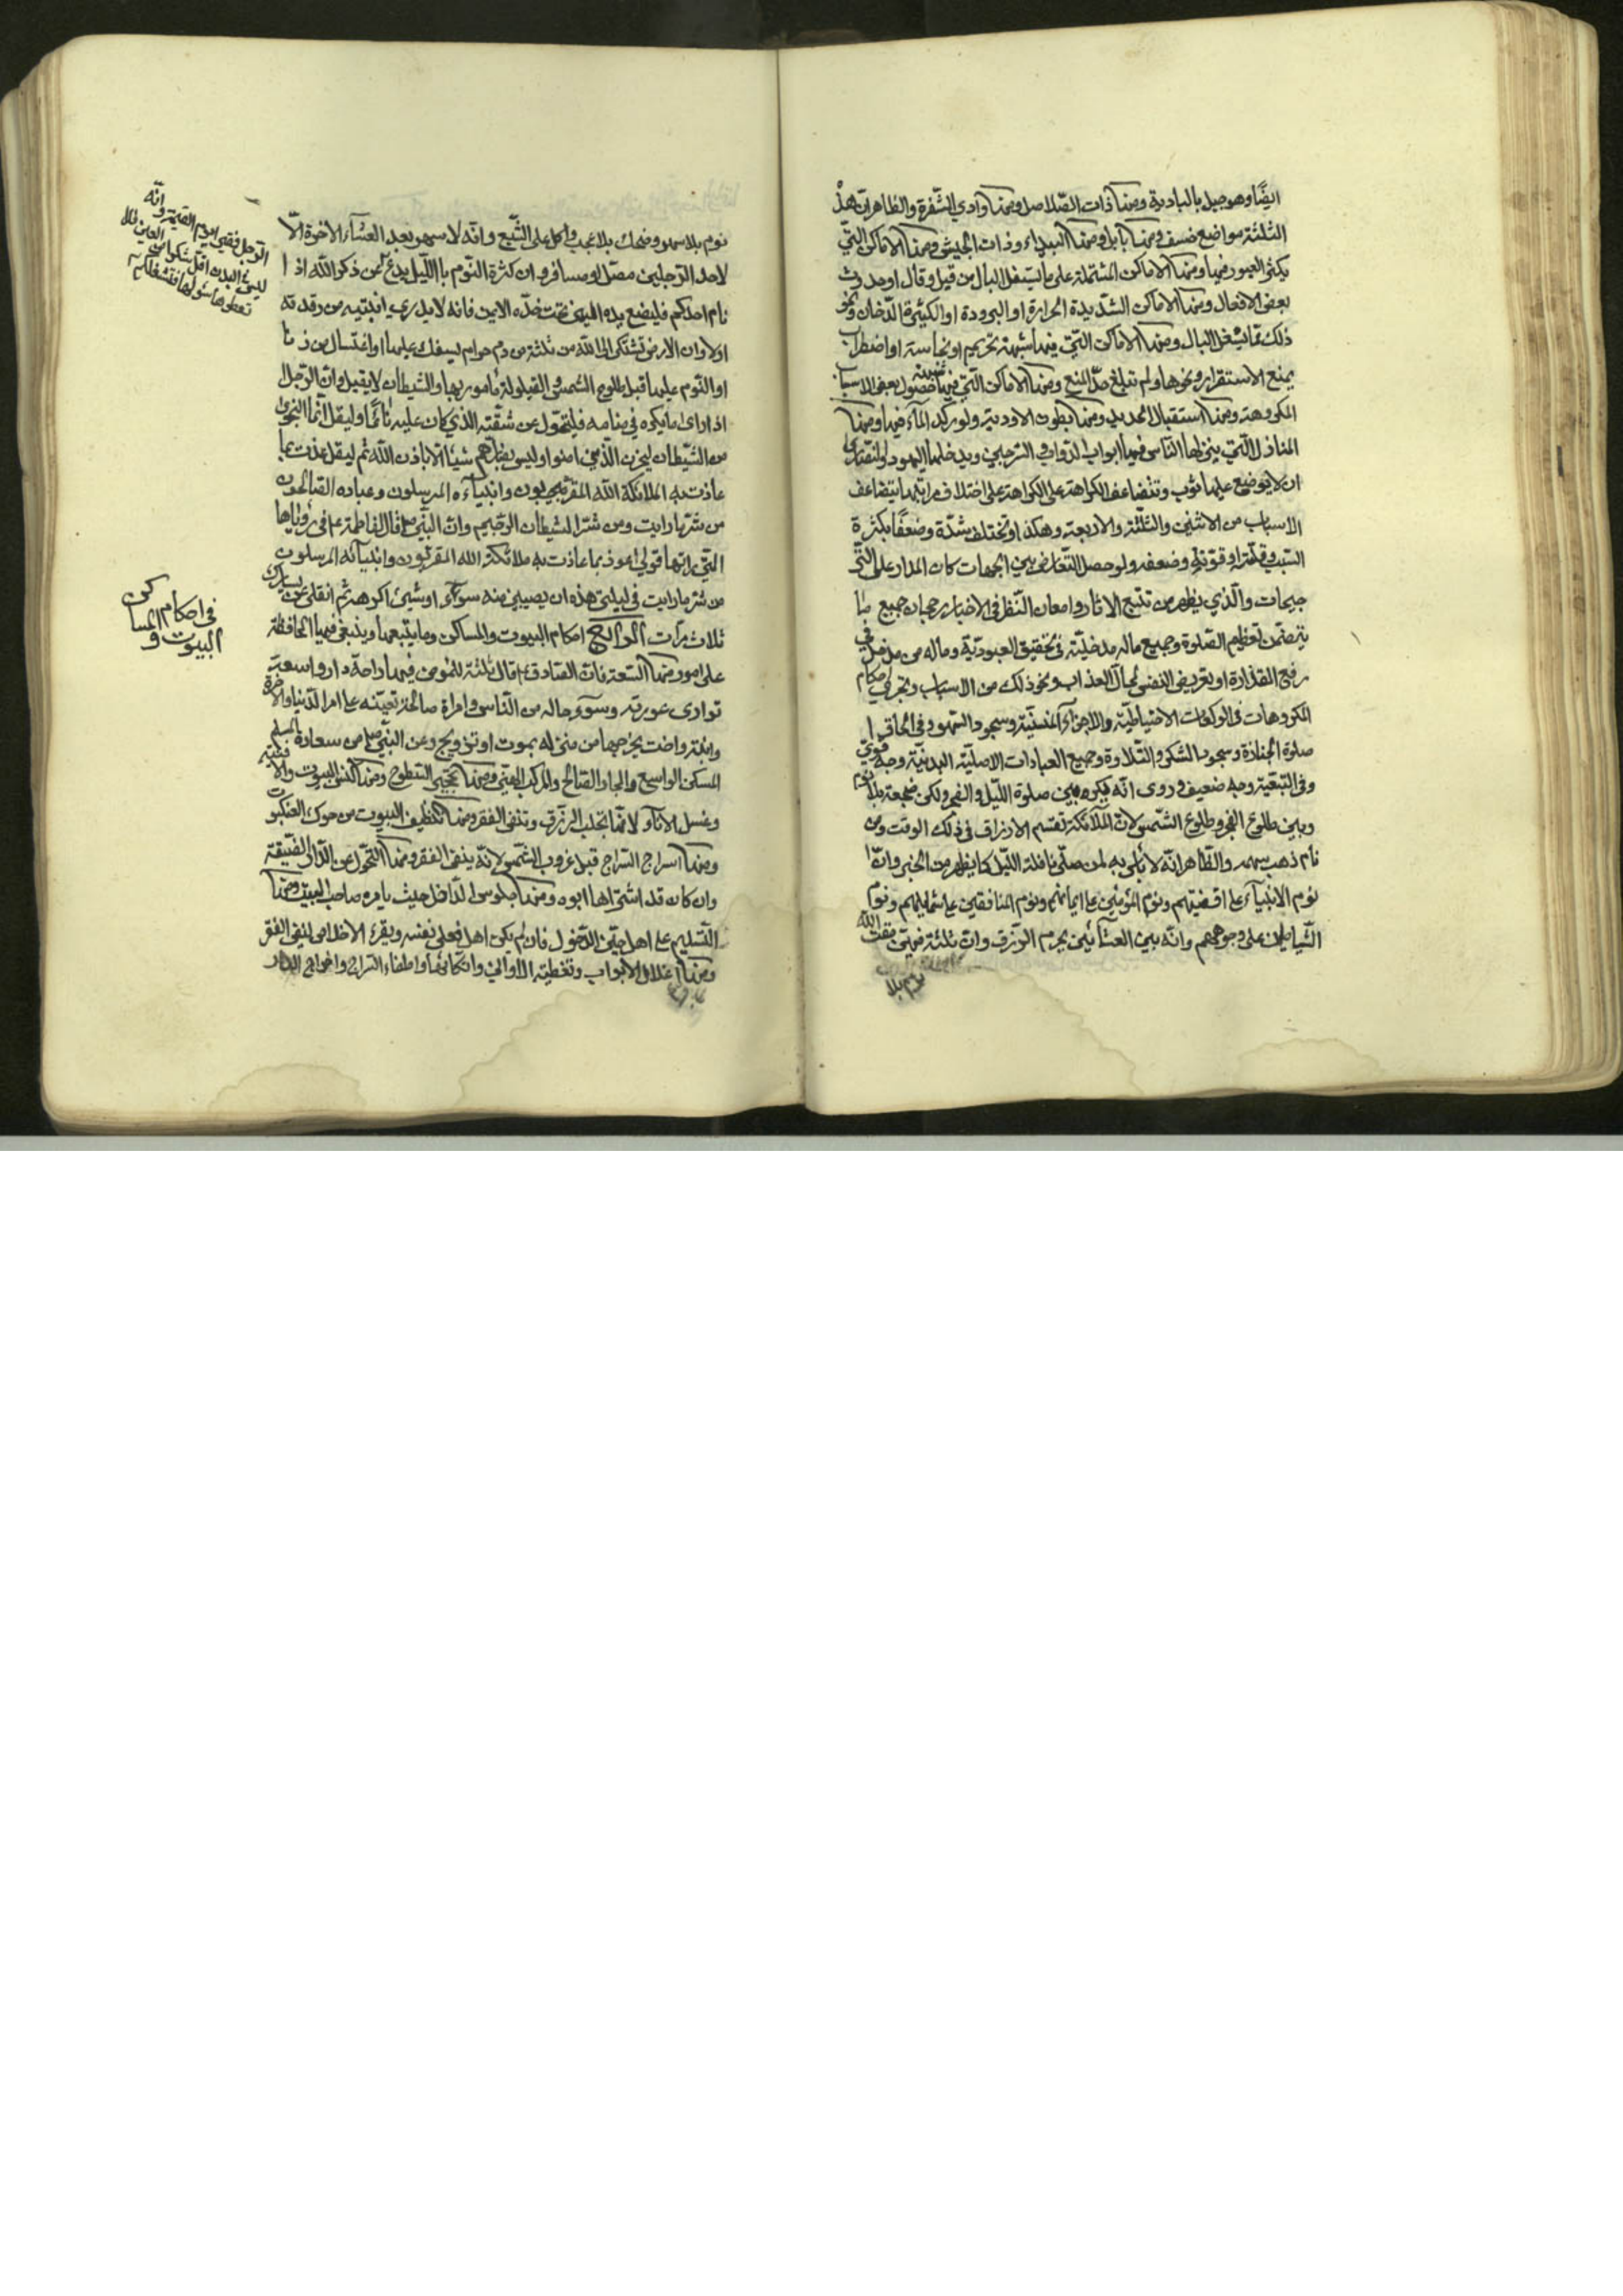 ايضًا وهو جبل بالبادية ومنها ذات الصّلاصل ومنها وادي الشقرة والظاهر انّ هذه
الثلثة مواضع خسف ومنها بابل ومنها البيداء وذات الجيش ومنها الاماكن التي
يكثر العبور فيها ومنها الاماكن المشتملة على ما يشغل البال من قيل وقال او حدوث
بعض الافعال ومنها الاماكن الشديدة الحرارة او البرودة او الكثيرة الدّخان ونحو
ذلك ممّا يشغل البال ومنها الاماكن التي فيها شبهة تحريم او نجاسة او اضطراب
يمنع الاستقرار ونحوها ولم تبلغ حدّ المنع ومنها الاماكن التي فيها حصول بعض الاسباب
المكروهة ومنها استقبال الحديد ومنها بطون الاودية ولو ركد الماء فيها ومنها
المنازل التي ينزلها الناس فيها ابواب الدواب والسرجين ويدخلها اليهود والنصارى
ان لا يوضع عليها ثوب وتتضاعف الكراهة على الكراهة على اختلاف مراتبها بتضاعف
الاسباب من الاثنين والثلثة والاربعة وهكذا وتختلف شدّة وضعفًا بكثرة
السّبب وقلّته او قوّته وضعفه ولو حصل التّعارض بين الجهات كان المدار على التّر
جيحات والّذي يظهر من تتبع الاثار وامعان النّظر في الاخبار رجحان جميع ما
يتضمّن تعظيم الصّلوة وجميع ماله مدخليّة في تحقيق العبوديّة وماله من مدخل في
رفع القذارة او تعريض النفس لمحالّ العذاب ونحو ذلك من الاسباب وتجري احكام
المكروهات في الركعات الاحتياطيّة والاجزاء المنسيّة وسجود السّهو وفي الحاق
صلوة الجنازة وسجود الشكر والتّلاوة وجميع العبادات الاصليّة البدنيّة وجه قويّ
وفي التّبعيّة وجه ضعيف وروى انّه يكره بين صلوة اللّيل والفجر ولكن ضجعة بلا نوم
وبين طلوع الفجر وطلوع الشّمس لانّ الملائكة تقسم الارزاق في ذلك الوقت ومن
نام ذهب سهمه والظّاهر انّه لا باس به لمن صلّى نافلة اللّيل كما يظهر من الخبر وانّ
نوم الانبياء على اقفيتهم ونوم المؤمنين على ايمانهم ونوم المنافقين على شمايلهم ونوم
الشّياطين على وجوههم وانّه بين العشائين يحرم الرّزق وانّ ثلثة فيهنّ مقت الله
نوم بلا
نوم بلا سهر وضحك بلا عجب واكل على الشّبع وانّه لا سهر بعد العشاء الاخرة الّا
لاحد الرّجلين مصلّ او مسافر وان كثرة النّوم باللّيل يدع عن ذكر الله اذا
نام احدكم فليضع يده اليمنى تحت خدّه الايمن فانه لا يدري اينتبه من رقدته
اولا وان الارض تشتكي الى اللّه من ثلثة من دم حرام يسفك عليها او اغتسال من زنا
او النّوم عليها قبل طلوع الشمس والقيلولة مامور بها والشيطان لا يقيل وانّ الرّجل
اذا راى ما يكره في منامه فليتحوّل عن شقّه الذي كان عليه نائمًا وليقل انّما النجوى
من الشّيطان ليحزن الّذين امنوا وليس بضارّهم شيئًا الّا باذن اللّه ثم ليقل عذت بما
عاذت به الملائكة اللّه المقرّبون وانبياءه المرسلون وعباده الصّالحون
من شرّ ما رايت ومن شرّ الشيطان الرّجيم وانّ النّبي صلى قال لفاطمة ع في رؤياها
التي راتها قولي اعوذ بما عاذت به ملائكة الله المقرّبون وانبيائه المرسلون
من شرّ ما رايت في ليلتي هذه ان يصيبني منه سوء او شيئ اكرهه ثم انقلي عن يسارك
ثلاث مرّات الرابع احكام البيوت والمساكن وما يتبعها وينبغي فيها المحافظة
على امور منها السّعة فانّ الصّادق ع قال ثلثة للمومن فيها راحة دار واسعة
توارى عورته وسوء حاله من النّاس وامراة صالحة تعينه على امر الدّنيا والاخرة
وابنة واخت يخرجها من منزله بموت او تزويج وعن النّبي صلى من سعادة المسلم
المسكن الواسع والجار الصّالح والمركب الهنيّ ومنها تحجير السّطوح ومنها كنس البيوت والافنية
وغسل الاناء لانّها تجلب الرّزق وتنفى الفقر ومنها تنظيف البيوت من حوك العنكبوت
ومنها اسراج السّراج قبل غروب الشّمس لانّه ينفى الفقر ومنها التحوّل عن الدّار الضّيقة
وان كان قد اشتراها ابوه ومنها جلوس الدّاخل حيث يامره صاحب البيت ومنها
التّسليم على اهله حين الدّخول فان لم يكن اهل فعلى نفسه ويقرء الاخلاص لنفي الفقر
ومنها اغلاق الابواب وتغطية الاواني وايكائها واطفاء السّراج واخراج
وانّه
الرّجل فقير يوم القيمة و
العين قال
ليس في البدن اقلّ شكرا من
تعطوها سؤلها فتشغلكم
في احكام
البيوت و
المساكن